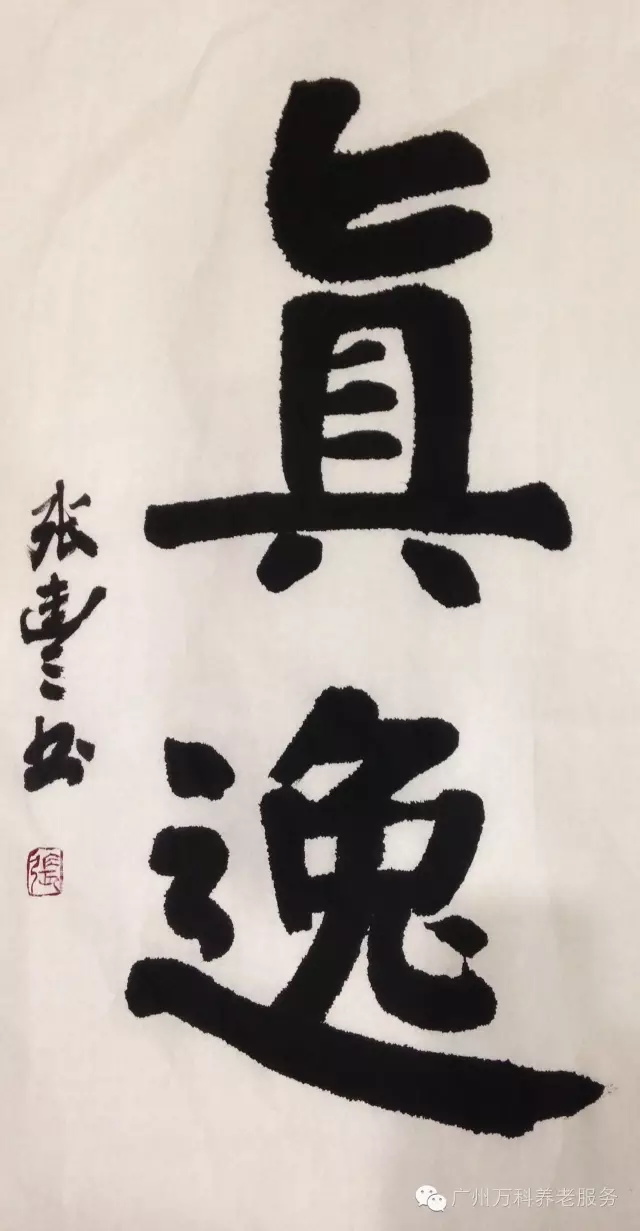 眞逸
张
书
張
广州万科养老服务